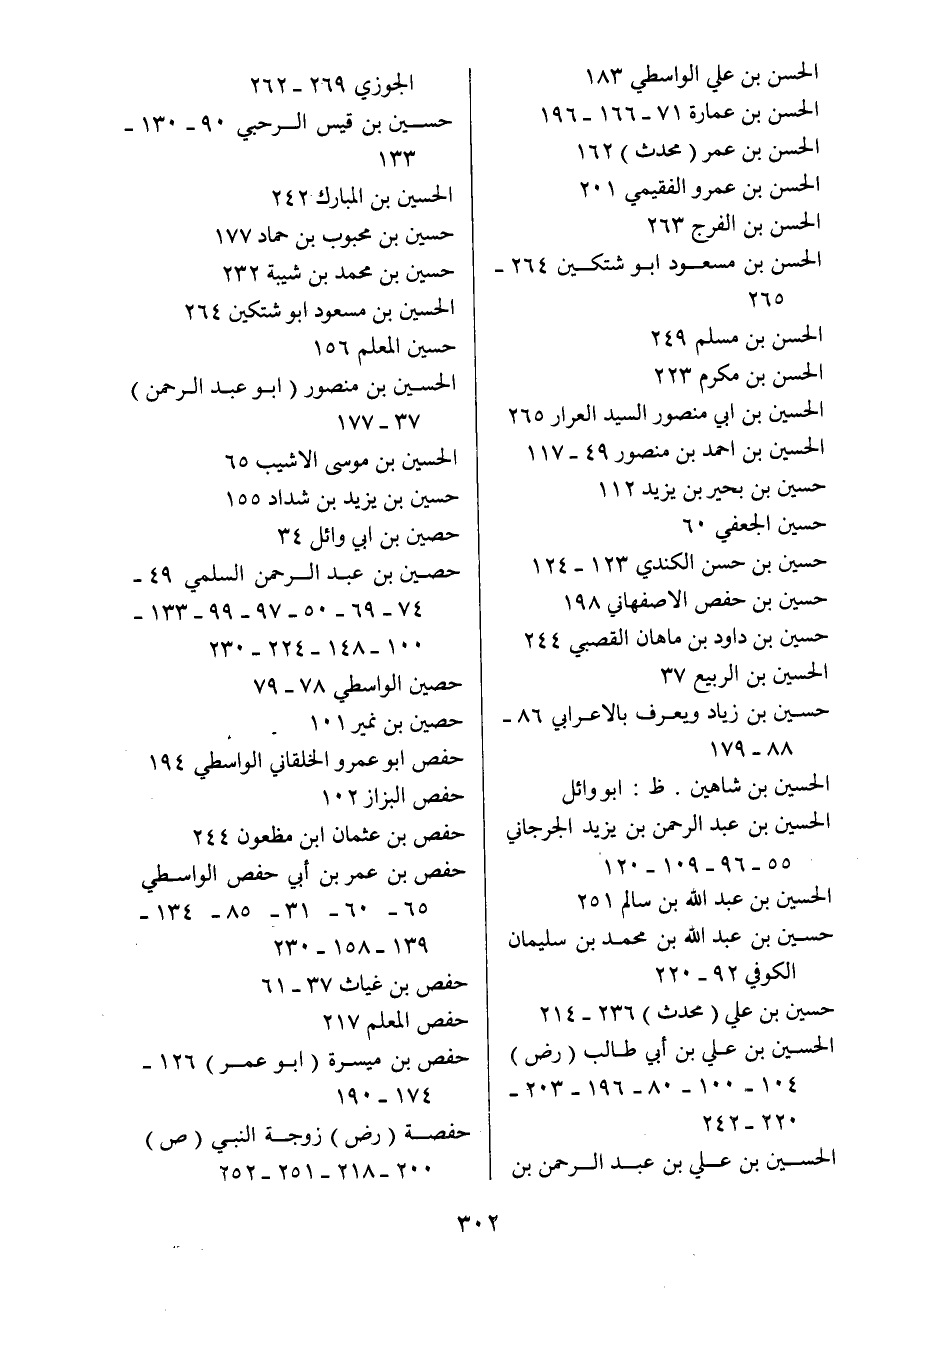 الحسن بن علي الواسطي ١٨٣
الحسن بن عمارة ٧١ ـ ١٦٦ ـ ١٩٦
الحسن بن عمر ( محدث ) ١٦٢
الحسن بن عمرو الفقيمي ٢٠١
الحسن بن الفرج ٢٦٣
الحسن بن مسعود ابو شتكين ٢٦٤ ـ
٢٦٥
الحسن بن مسلم ٢٤٩
الحسن بن مكرم ٢٢٣
الحسين بن ابي منصور السيد العرار ٢٦٥
الحسين بن احمد بن منصور ٤٩ ـ ١١٧
حسين بن بحير بن يزيد ١١٢
حسين الجعفي ٦٠
حسين بن حسن الكندي ١٢٣ ـ ١٢٤
حسين بن حفص الاصفهاني ١٩٨
حسين بن داود بن ماهان القصبي ٢٤٤
الحسين بن الربيع ٣٧
حسين بن زياد ويعرف بالاعرابي ٨٦ ـ
٨٨ ـ ١٧٩
الحسين بن شاهين . ظ : ابو وائل
الحسين بن عبد الرحمن بن يزيد الجرجاني
٥٥ ـ ٩٦ ـ ١٠٩ ـ ١٢٠
الحسين بن عبد الله بن سالم ٢٥١
حسين بن عبد الله بن محمد بن سليمان
الكوفي ٩٢ ـ ٢٢٠
حسين بن علي ( محدث ) ٢٣٦ ـ ٢١٤
الحسين بن علي بن أبي طالب ( رض )
١٠٤ ـ ١٠٠ ـ ٨٠ ـ ١٩٦ ـ ٢٠٣ ـ
٢٢٠ ـ ٢٤٢
الحسين بن علي بن عبد الرحمن بن
الجوزي ٢٦٩ ـ ٢٦٢
حسين بن قيس الرحبي ٩٠ ـ ١٣٠ ـ
١٣٣
الحسين بن المبارك ٢٤٢
حسين بن محبوب بن حماد ١٧٧
حسين بن محمد بن شيبة ٢٣٢
الحسين بن مسعود ابو شتكين ٢٦٤
حسين المعلم ١٥٦
الحسين بن منصور ( ابو عبد الرحمن )
٣٧ ـ ١٧٧
الحسين بن موسى الاشيب ٦٥
حسين بن يزيد بن شداد ١٥٥
حصين بن ابي وائل ٣٤
حصين بن عبد الرحمن السلمي ٤٩ ـ
٧٤ ـ ٦٩ ـ ٥٠ ـ ٩٧ ـ ٩٩ ـ ١٣٣ ـ
١٠٠ ـ ١٤٨ ـ ٢٢٤ ـ ٢٣٠
حصين الواسطي ٧٨ ـ ٧٩
حصين بن نمير ١٠١
حفص ابو عمرو الخلقاني الواسطي ١٩٤
حفص البزاز ١٠٢
حفص بن عثمان ابن مظعون ٢٤٤
حفص بن عمر بن أبي حفص الواسطي
٦٥ ـ ٦٠ ـ ٣١ ـ ٨٥ ـ ١٣٤ ـ
١٣٩ ـ ١٥٨ ـ ٢٣٠
حفص بن غياث ٣٧ ـ ٦١
حفص المعلم ٢١٧
حفص بن ميسرة ( ابو عمر ) ١٢٦ ـ
١٧٤ ـ ١٩٠
حفصة ( رض ) زوجة النبي ( ص )
٢٠٠ ـ ٢١٨ ـ ٢٥١ ـ ٢٥٢
٣٠٢